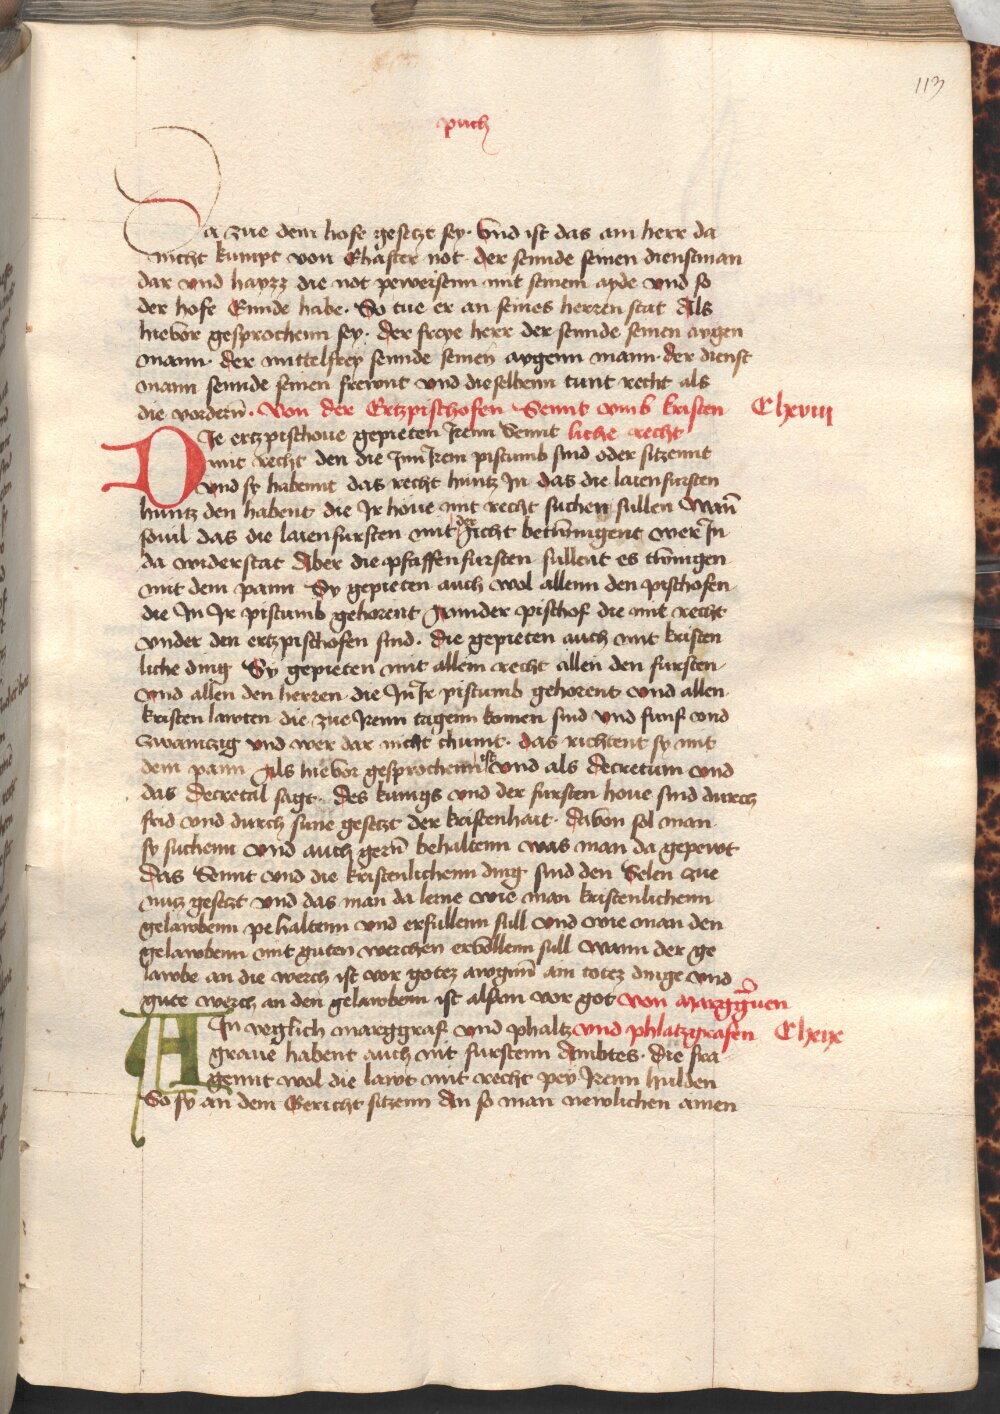 113
puch
Da zue dem hofe gesetzt sey. Vnd ist das ain herr da
nicht kumpt von Ehafter not. der sennde seinen dienstman
dar vnd hayzz die not pewersenn mit seinem ayde vnd so
der hofe Ennde habe. So tue er an seines herren stat Als
hieuor gesprochenn sey. der freye herr der sennde seinen aygen
mann. der mittelfrey sennde seinen aygenn mann. der dienst
mann sennde seinen frewnt vnd dieselbenn tunt recht als
die vordern̄. Von der Ertzpischofen Sennt vmb kristen Clxviij
DJe ertzpischoue gepieten Jrenn Sennt liche recht
mit recht den die Jnn Jrem pistumb sind oder sitzennt
vnd sy habennt das recht huntz Jn das die laienfursten
huntz den habent die Jr höue mit recht suchen sullen Wan̄
souil das die laienfursten mit der Ächt betwingent wer Jn
da widerstat Aber die pfaffenfursten sullent es twingen
mit dem pann Sy gepieten auch wol allenn den pischofen
die Jn Jr pistumb gehorent Annder pischof die mit recht
vnder den ertzpischofen sind. die gepieten auch mit kristen
liche ding Sy gepieten mit allem recht allen den fursten
vnd allen den herren die Jn Jr pistumb gehorent vnd allen
kristen lawten die zue Jrenn tagenn komen sind vnd funf vnd
zwainzig vnd wer dar nicht chumt. das richtent sy mit
dem pann Als hieuor gesprochenn ist vnd als decretum vnd
das decretal sagt. des kunigs vnd der fursten houe sind durch
frid vnd durch sune gesetzt der kristenhait. dauon sol man
sy suchenn vnd auch gern̄ behaltenn was man da gepewt
das Sennt vnd die kristenlichenn ding sind den Selen zue
nutz gesetzt vnd das man da lerne wie man kristenlichenn
gelawbenn pehaltenn vnd erfullenn sull vnd wie man den
gelawbenn mit guten werchen eruollenn sull wann der ge
lawbe an die werch ist vor gotez awgnn̄ ain totez dinge vnd
gute werch an den gelawbenn ist alsam vor got von Marggrāuen
AJn yeglich marggraf vnd phaltz vnd phlatzgrafen Clxix
graue habent auch mit furstenn Ambtes. die fra
gennt wol die lawt mit recht pey Jrenn hulden
So sy an dem Gericht sitzenn An so man newlichen ainen